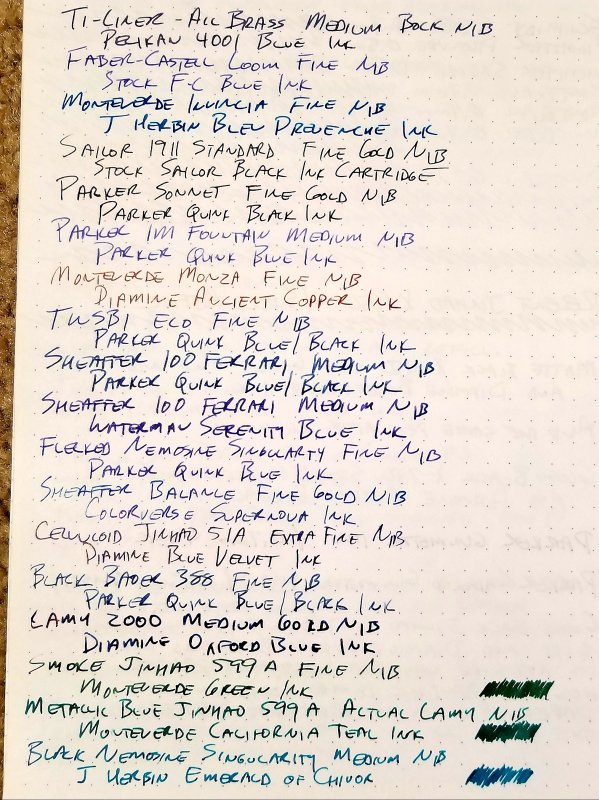 TI-LINER - ALL BRASS MEDIUM BOCK NIB
PELIKAN 4001 BLUE INK
FABER-CASTELL LOOM FINE NIB
STOCK F-C BLUE INK
MONTEVERDE INVINCIA FINE NIB
J HERBIN BLEU PREVENCHE INK
SAILOR 1911 STANDARD FINE GOLD NIB
STOCK SAILOR BLACK INK CARTRIDGE
PARKER SONNET FINE GOLD NIB
PARKER QUINK BLACK INK
PARKER IM FOUNTAIN MEDIUM NIB
PARKER QUINK BLUE INK
MONTEVERDE MONZA FINE NIB
DIAMINE ANCIENT COPPER INK
TWSBI ECO FINE NIB
PARKER QUINK BLUE/BLACK INK
SHEAFFER 100 FERRARI MEDIUM NIB
PARKER QUINK BLUE/BLACK INK
SHEAFFER 100 FERRARI MEDIUM NIB
WATERMAN SERENITY BLUE INK
FLEXED NEMOSINE SINGULARITY FINE NIB
PARKER QUINK BLUE INK
SHEAFFER BALANCE FINE GOLD NIB
COLORVERSE SUPERNOVA INK
CELLULOID JINHAO 51A EXTRA FINE NIB
DIAMINE BLUE VELVET INK
BLACK BAOER 388 FINE NIB
PARKER QUINK BLUE/BLACK INK
LAMY 2000 MEDIUM GOLD NIB
DIAMINE OXFORD BLUE INK
SMOKE JINHAO 599A FINE NIB
MONTEVERDE GREEN INK
METALLIC BLUE JINHAO 599A ACTUAL LAMY NIB
MONTEVERDE CALIFORNIA TEAL INK
BLACK NEMOSINE SINGULARITY MEDIUM NIB
J HERBIN EMERALD OF CHIVOR